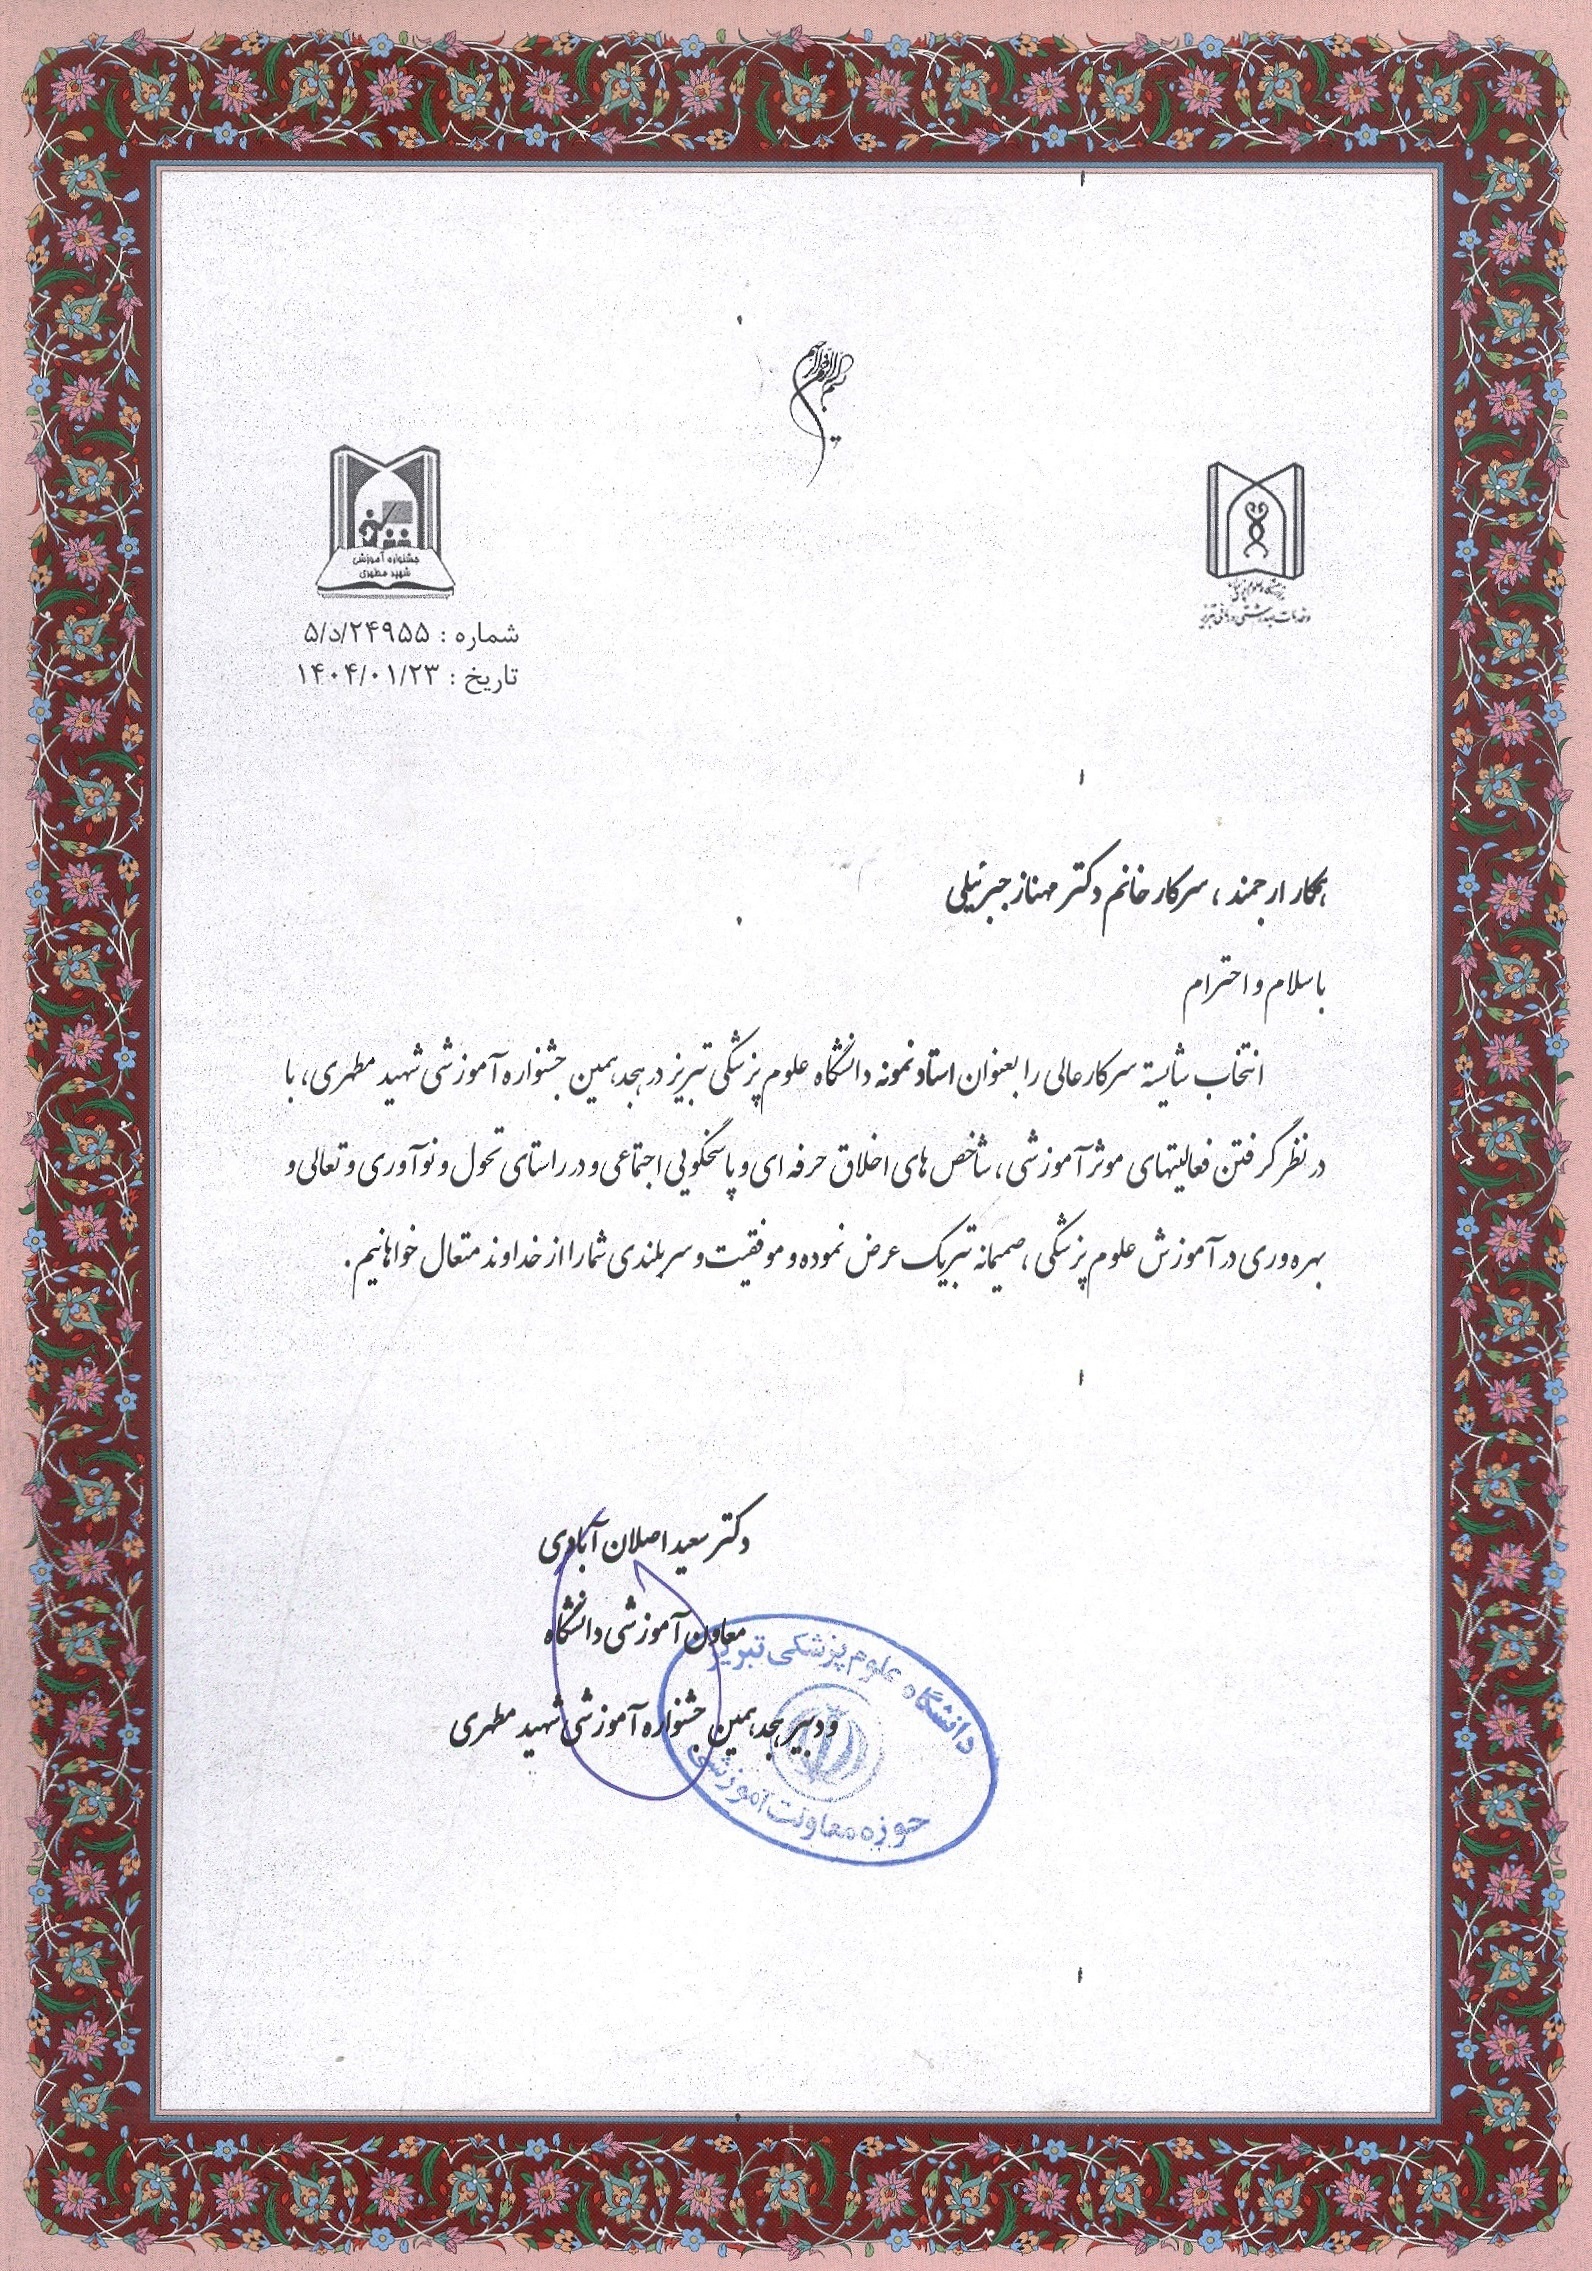 بسم الله الرحمن الرحیم
جشنواره آموزشی
شهید مطهری
دانشگاه علوم پزشکی
و خدمات بهداشتی درمانی تبریز
شماره : ۵/د/۲۴۹۵۵
تاریخ : ۱۴۰۴/۰۱/۲۳
همکار ارجمند ، سرکار خانم دکتر مهناز جبرئیلی
با سلام و احترام
انتخاب شایسته سرکار عالی را بعنوان استاد نمونه دانشگاه علوم پزشکی تبریز در هجدهمین جشنواره آموزشی شهید مطهری، با
در نظر گرفتن فعالیتهای موثر آموزشی ، شاخص های اخلاق حرفه ای و پاسخگویی اجتماعی و در راستای تحول و نوآوری و تعالی و
بهره وری در آموزش علوم پزشکی ، صمیمانه تبریک عرض نموده و موفقیت و سربلندی شما را از خداوند متعال خواهانیم .
دکتر سعید اصلان آبادی
معاون آموزشی دانشگاه
و دبیر هجدهمین جشنواره آموزشی شهید مطهری
دانشگاه علوم پزشکی تبریز
حوزه معاونت آموزشی